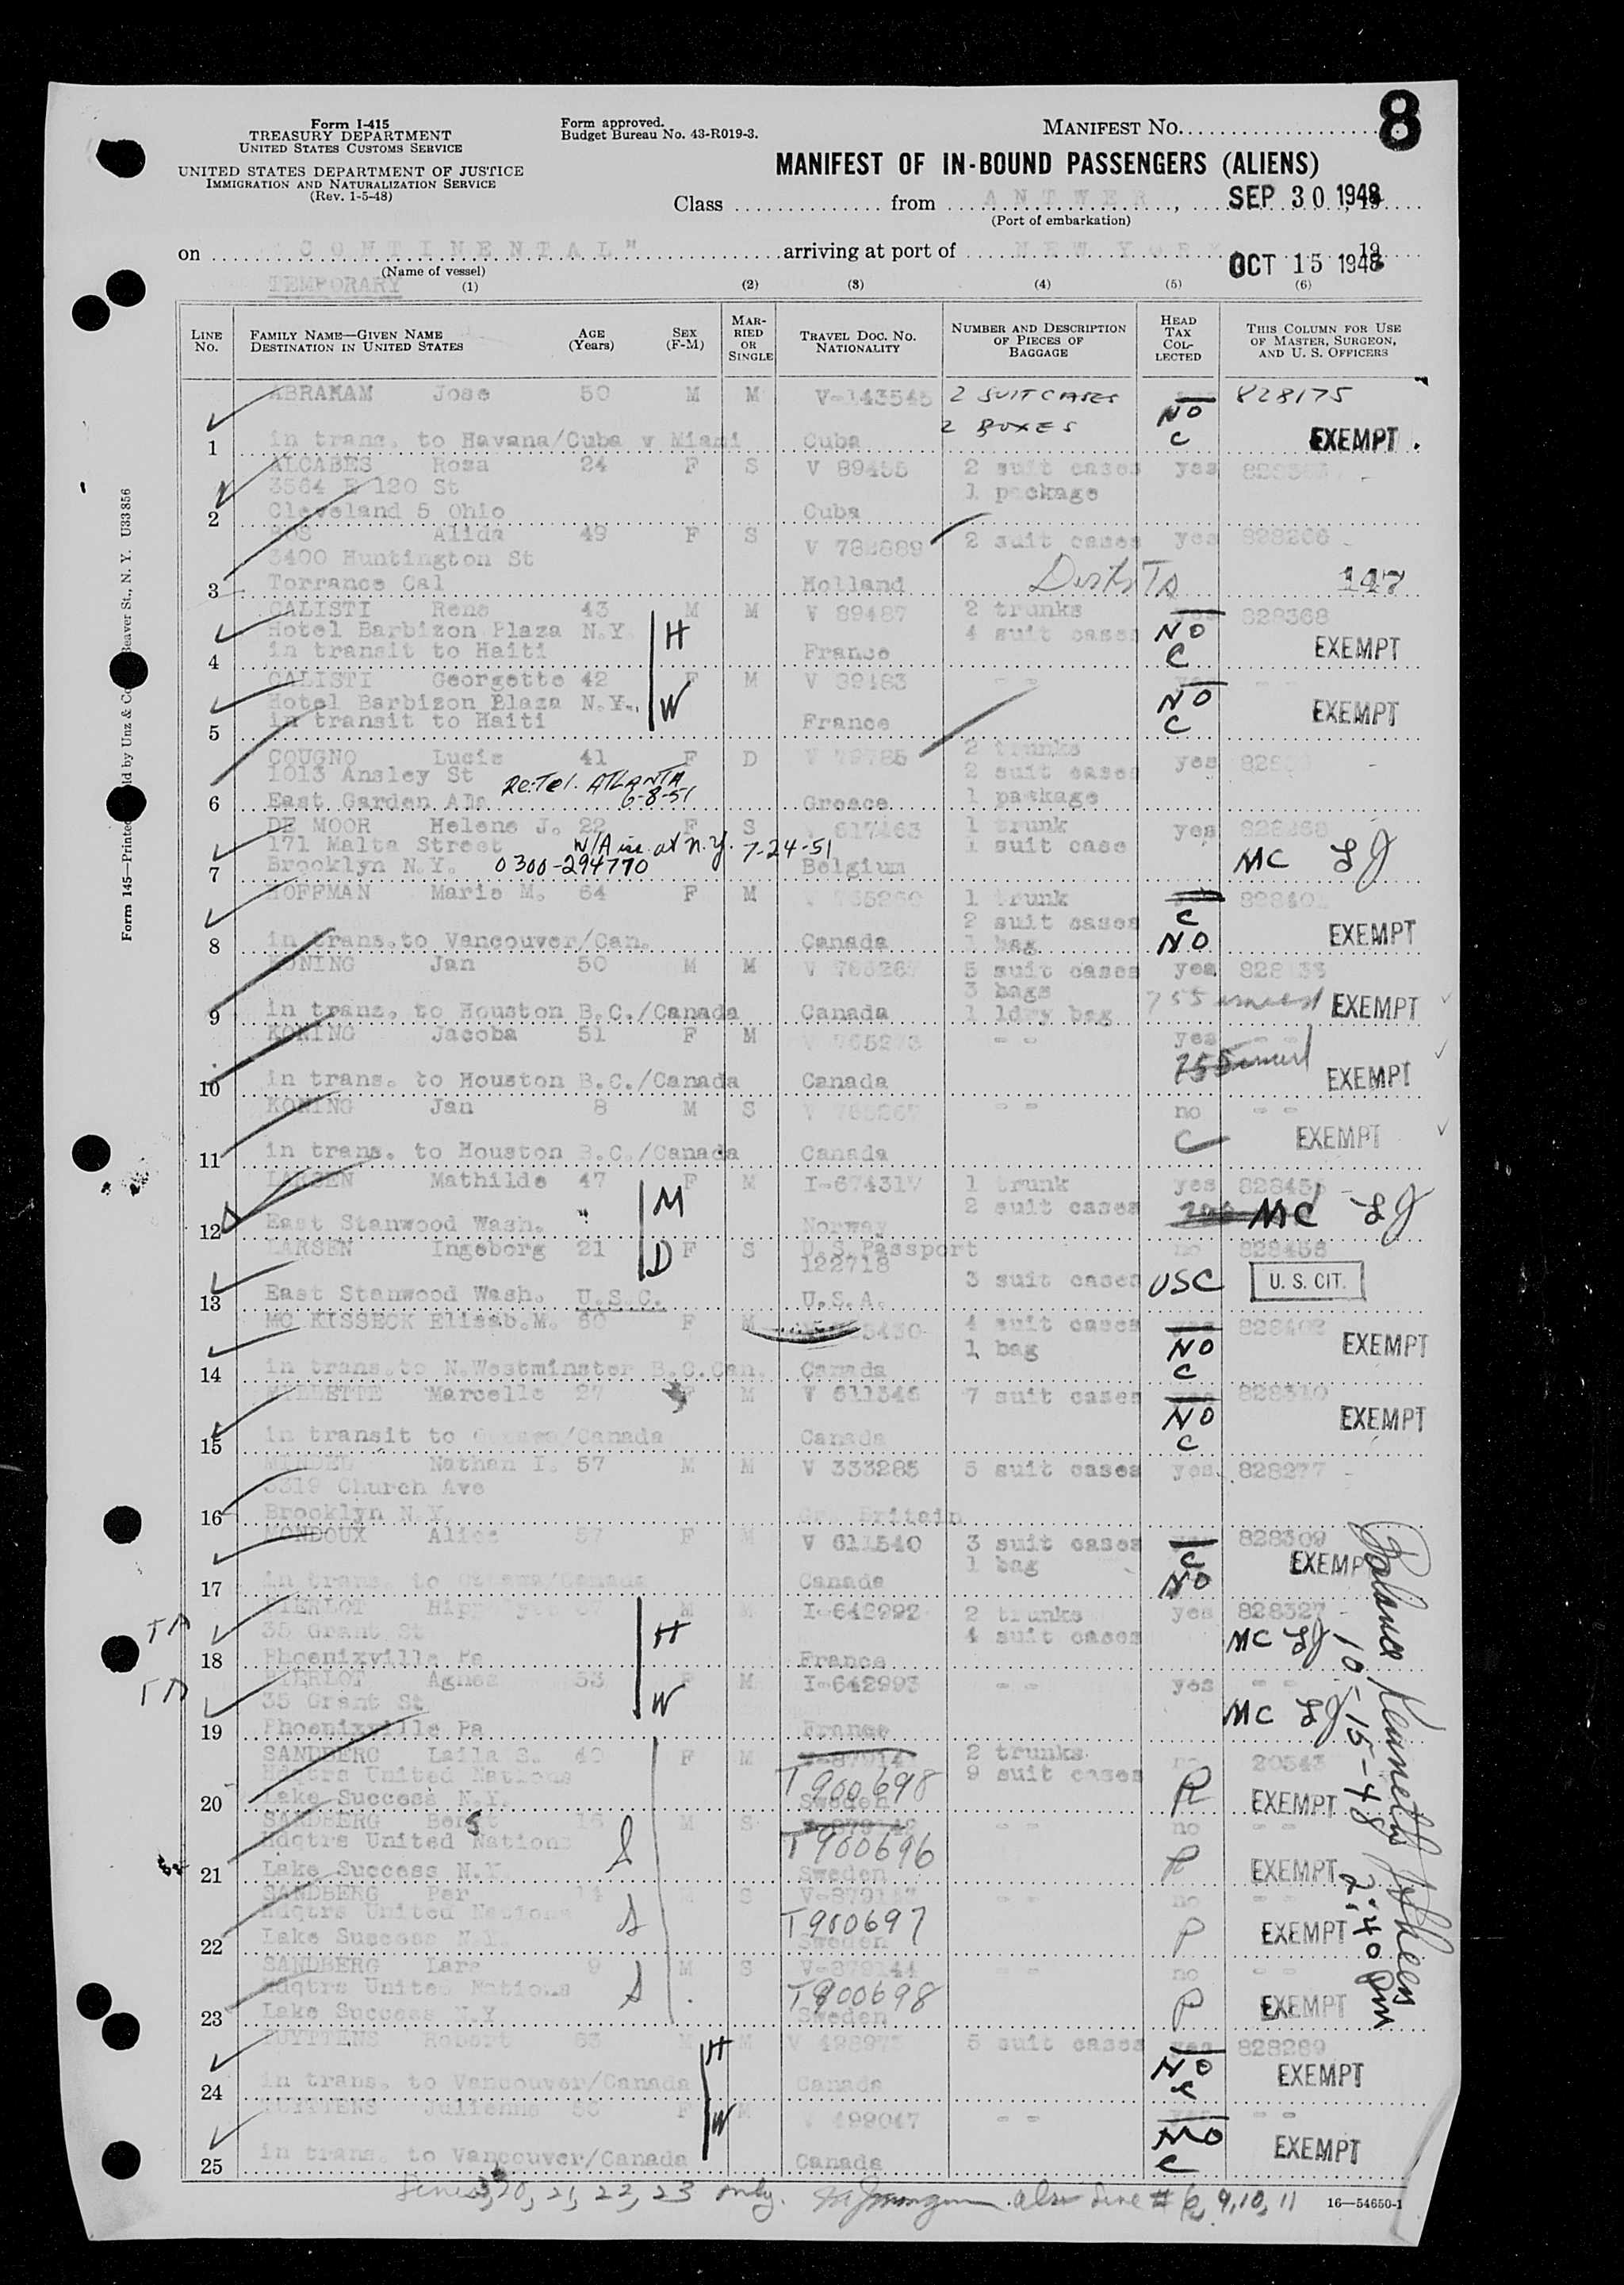 8
Form I-415
TREASURY DEPARTMENT
UNITED STATES CUSTOMS SERVICE
UNITED STATES DEPARTMENT OF JUSTICE
IMMIGRATION AND NATURALIZATION SERVICE
(Rev. 1-5-48)
Form approved.
Budget Bureau No. 43-R019-3.
MANIFEST NO.
MANIFEST OF IN-BOUND PASSENGERS (ALIENS)
Class from ANTWER, SEP 30 1948
(Port of embarkation)
on CONTINENTAL" arriving at port of NEW YORK 19
OCT 15 1948
(Name of vessel)
TEMPORARY
(1) (2) (3) (4) (5) (6)
LINE NO. FAMILY NAME—GIVEN NAME DESTINATION IN UNITED STATES AGE (Years) SEX (F-M) MARRIED OR SINGLE TRAVEL DOC. NO. NATIONALITY NUMBER AND DESCRIPTION OF PIECES OF BAGGAGE HEAD TAX COLLECTED THIS COLUMN FOR USE OF MASTER, SURGEON, AND U. S. OFFICERS
ABRAHAM Jose 50 M M V-143545 2 SUITCASES 828175
2 BOXES NO
1 in trans. to Havana/Cuba v Miami Cuba C EXEMPT
ALCABES Rosa 24 F S V 89455 2 suit cases yes
3564 E 120 St 1 package
2 Cleveland 5 Ohio Cuba
BOS Alida 49 F S V 782889 2 suit cases yes 828266
3400 Huntington St
3 Torrance Cal Holland 147
CALISTI Rene 43 M M V 89487 2 trunks yes 828368
Hotel Barbizon Plaza N.Y. H 4 suit cases NO
4 in transit to Haiti France C EXEMPT
CALISTI Georgette 42 F M V 89483 - - - -
Hotel Barbizon Plaza N.Y. W NO
5 in transit to Haiti France C EXEMPT
COUGNO Lucie 41 F D V 79785 2 trunks yes
1013 Ansley St 2 suit cases
Re:Tel. ATLANTA 6-8-51
6 East Garden Ala Greece 1 package
DE MOOR Helene J. 22 F S V 617463 1 trunk yes 828268
171 Malta Street 1 suit case
W/A iss. at N.Y. 7-24-51
7 Brooklyn N.Y. 0300-294770 Belgium MC LJ
HOFFMAN Marie M. 64 F M 1 trunk
2 suit cases C
8 in trans.to Vancouver/Can. Canada 1 bag NO EXEMPT
KONING Jan 50 M M V 765267 5 suit cases yes
3 bags
9 in trans. to Houston B.C./Canada Canada 1 ldry bag 755 EXEMPT
KONING Jacoba 51 F M V 765273 - - yes - -
10 in trans. to Houston B.C./Canada Canada 755 EXEMPT
KONING Jan 8 M S V 765267 - - no - -
11 in trans. to Houston B.C./Canada Canada C EXEMPT
LARSEN Mathilde 47 F M I-674317 1 trunk yes
M 2 suit cases MC LJ
12 East Stanwood Wash. Norway
LARSEN Ingeborg 21 F S U.S.Passport no 828458
D 122718 3 suit cases USC U. S. CIT.
13 East Stanwood Wash. U.S.C. U.S.A.
MC KISSECK Elisab.M. 60 F M 4 suit cases 828402
1 bag NO EXEMPT
14 in trans.to N.Westminster B.C.Can. Canada C
Marcelle 27 F M V 611346 7 suit cases 828310
NO EXEMPT
15 in transit to Ottawa/Canada Canada C
MINDEL Nathan I. 57 M M V 333285 5 suit cases yes 828277
5319 Church Ave
16 Brooklyn N.Y. Gr. Britain
MONDOUX Alice 57 F M V 611540 3 suit cases 828309
1 bag C EXEMPT
17 in trans. to Ottawa/Canada Canada NO
TA PIERLOT M M I-642992 2 trunks yes 828327
35 Grant St H 4 suit cases MC LJ
18 Phoenixville Pa France
TA PIERLOT Agnes 53 F M I-642993 - - yes - -
35 Grant St W MC LJ
19 Phoenixville Pa France
SANDBERG Laila S. F M 2 trunks no 20543
Hdqtrs United Nations T900698 9 suit cases R
20 Lake Success N.Y. Sweden EXEMPT
SANDBERG 16 M S - - no - -
Hdqtrs United Nations S T900696
21 Lake Success N.Y. Sweden EXEMPT
SANDBERG Per 14 M S - - no - -
Hdqtrs United Nations S T900697
22 Lake Success N.Y. Sweden EXEMPT
SANDBERG Lars 9 M S V-879144 - - no - -
Hdqtrs United Nations S T900698
23 Lake Success N.Y. Sweden EXEMPT
PUYTTENS Robert 63 M M 5 suit cases yes 828289
H NO
24 in trans. to Vancouver/Canada Canada C EXEMPT
PUYTTENS Julienne F M V 498047 - - - -
W NO
25 in trans. to Vancouver/Canada Canada C EXEMPT
20, 21, 22, 23 only. also line # 6, 9, 10, 11
16—54650-1
10-15-48 2:40 pm
Form 145—Printed Unz & Co Beaver St., N. Y. U33 856